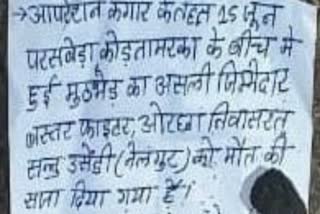 → आपरेशन कगार के तहत 15 जून
परसबेड़ा कोड़तामरका के बीच में
हुई मुठभेड़ का असली जिम्मेदार
बस्तर फाइटर, ओरछा निवासरत
सन्नु उसेंडी (नेलगुट) को मौत की
सजा दिया गया है।